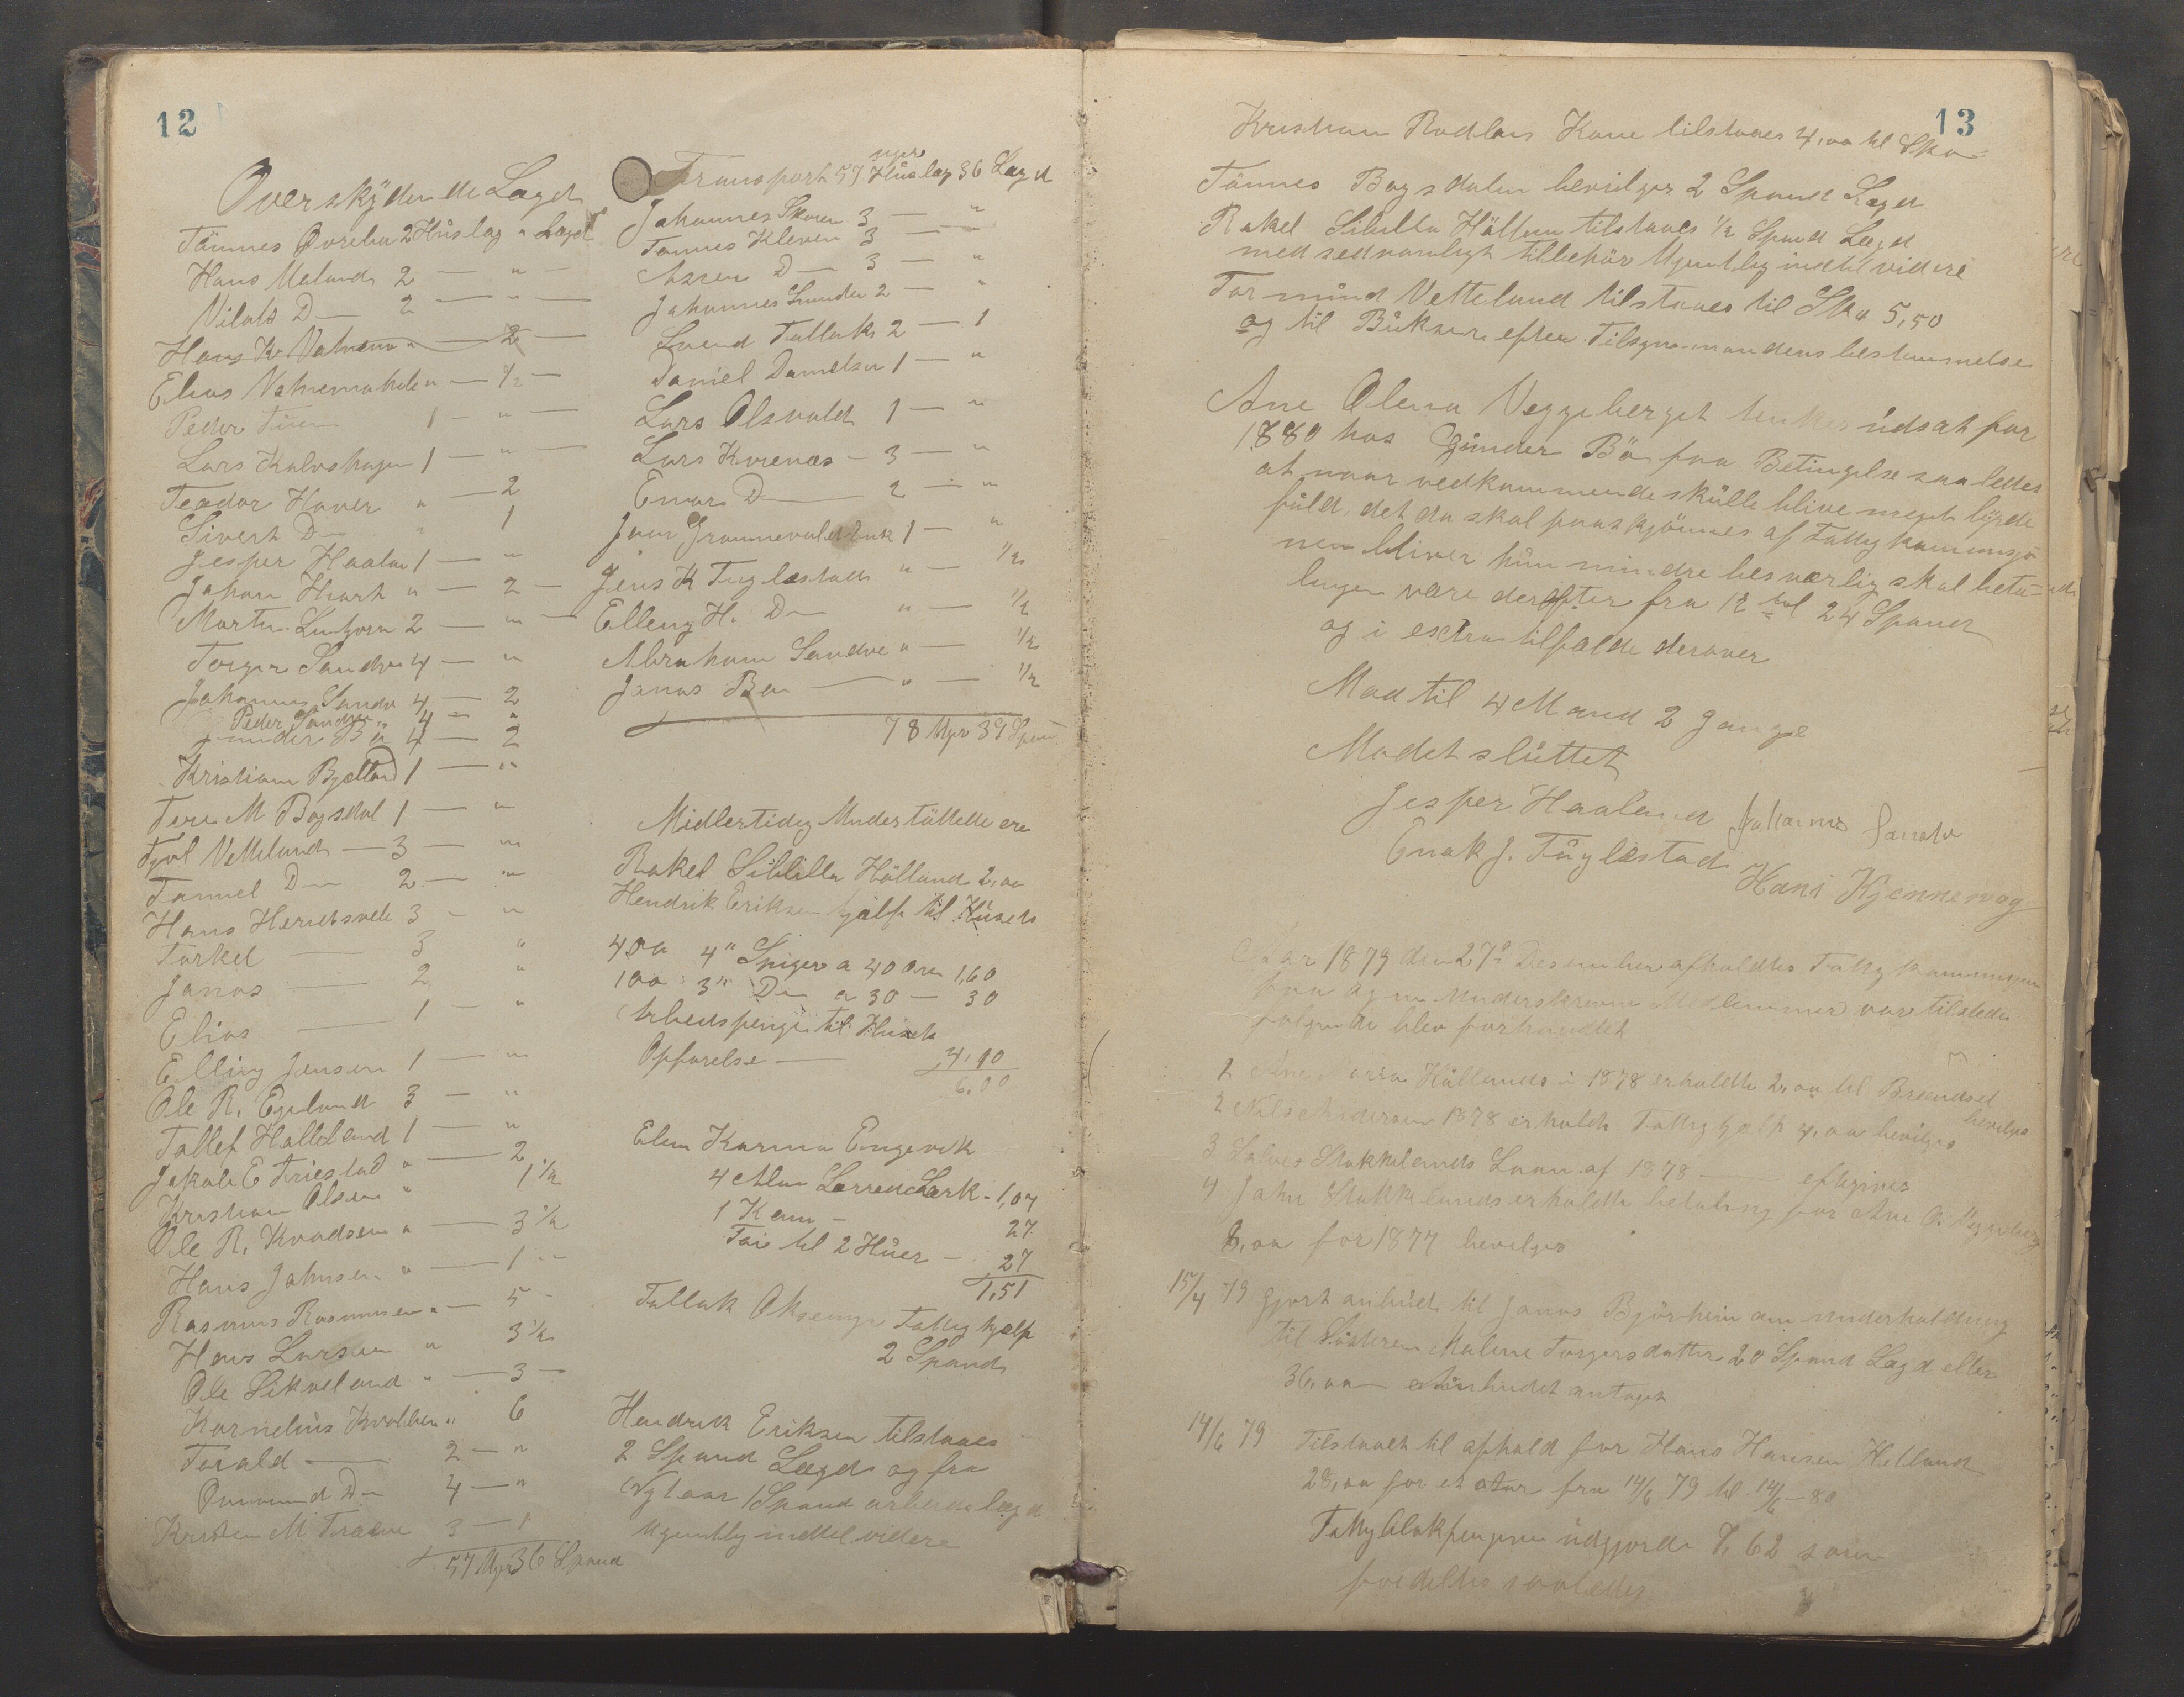 12
Overskydende Lægd
Tønnes Øvrebø 2 Huslag " Lægd
Hans Maland 2 — " —
Vilats D— 2 — " —
Hans Kr Vatnem " — 2 —
Elias Vatnemohelen " — 1/2 —
Peder Tuen 1 — " —
Lars Kalvshagen 1 — " —
Teador Haver " — 2
Sivert D— " 1
Jesper Haaland 1 — "
Johan Hvart " — 2 —
Martin Lintjørn 2 — " —
Torger Sandve 4 — "
Johannes Sandve 4 — 2
Peder Sandve " 4 — "
Gunder Bø 4 — 2
Kristian Bjelland 1 — "
Tere M Bogsdal 1 — "
Tjøl Vetteland — 3 — "
Tønnel D— 2 — "
Hans Herredsvele 3 — "
Torkel — 3 "
Jonas — 2 "
Elias — 1 — "
Elling Jensen 1 — "
Ole R. Egeland 3 — "
Tallef Halleland 1 — "
Jakob E Friestad " — 2
Kristian Olsen " 1 1/2
Ole R. Knudsen " — 3 1/2
Hans Johnsen " — 1 —
Rasmus Rasmusen " — 5 —
Hans Larsen " 3 1/2
Ole Sikveland " — 3 —
Kornelius Kvalben " 6
Torald — 2 — "
Ommund D— 4 — "
Kristen M Træve 3 — 1
57 Uger 36 Spand
uger
Transport 57 Huslag 36 Lægd
Johannes Skoren 3 — "
Tønnes Kleven 3 — —
Assen D— 3 — "
Johannes Sunde 2 — "
Svend Tallaks 2 — 1
Daniel Danielsen 1 — "
Lars Olsvold 1 — "
Lars Kvenæs — 3 — "
Einar D— 2 — "
Jon Grønnevoldsbuk 1 — "
Jens K Fuglestad " — 1/2
Elleng H. D— " — 1/2
Abraham Sandve " — 1/2
Jonas Bøe — " — 1/2
78 Uger 39 Spand
Midlertidig Understøttede ere
Rakel Sibilla Hålland 2,00
Hendrik Eriksen hjælp til Husets
400 4" Spiger a 40 Øre 1,60
100 3" D— a 30 — 30
Arbeidspenge til Husets
Opførelse — 4,10
6,00
Elen Karina Engevik
4 Alen Lærred Særk — 1,04
1 Kam — 27
Tøi til 2 Huer — 27
1,51
Tallak Aksenys Fattighjælp
2 Spand
Hendrik Eriksen tilstaaes
2 Spand Lægd og fra
Nytaar 1 Spand arbeidslægd
Ugentlig indtil videre
13
Kristian Rodlans Kone tilstaaes 4,00 til Sko
Tønnes Bogsdalen bevilges 2 Spand Lægd
Rakel Sibilla Hålland tilstaaes 1/2 Spand Lægd
med sedvanligt tilbehør Ugentlig indtil videre
Tormund Vetteland tilstaaes til Sko 5,50
og til Bukser efter Tilsynsmandens bestemmelse
Ane Olena Veggeberget tenkes udsat for
1880 hos Gunder Bø paa Betingelse saaledes
at naar vedkommende skulle blive meget lyde
fuld, det da skal paaskjønnes af Fattigkommisjo
nen bliver hun mindre besværlig skal beta-
lingen være derefter fra 12 til 24 Spand
og i extra tilfælde derover
Mad til 4 Mand 2 Gange
Mødet sluttet
Jesper Haaland Johannes Sandve
Enok J. Fuglestad
Hans Kjennevog
Aar 1879 den 27de Desember afholdtes Fattigkommisjon
paa Ogne Underskrevne Medlemmer var tilstede
følgende blev forhandlet
1 Ane Maria Hållands i 1878 erholdte 2,00 til Brændsel
bevilges
2 Nils Andersen 1878 erholdte Fattighjelp 4,00 bevilges
3 Salves Stokkelands Laan af 1878 — eftergives
4 John Stokkelands erholdte betaling for Ane O. Veggeberg
8,00 for 1877 bevilges
15/4 79 gjort anbud til Jonas Bjørheim om underholdning
til Søsteren Malene Torgersdatter 20 Spand Lægd eller
36,00 Anbudet antaget
14/6 79 Tilstaaet til ophold for Hans Hansen Helland
28,00 for et Aar fra 14/6 79 til 14/6 — 80
Fattigblokpengene udgjorde 7,62 som
fordeltes saaledes